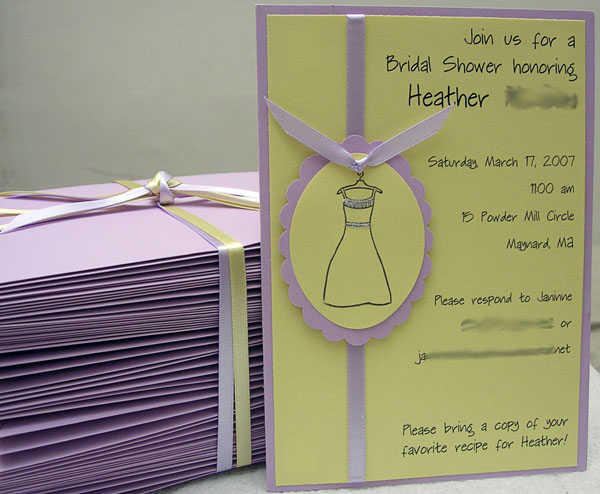 Join us for a
Bridal Shower honoring
Heather
Saturday, March 17, 2007
11:00 am
15 Powder Mill Circle
Maynard, Ma
Please respond to Janinne
or
ja net
Please bring a copy of your
favorite recipe for Heather!